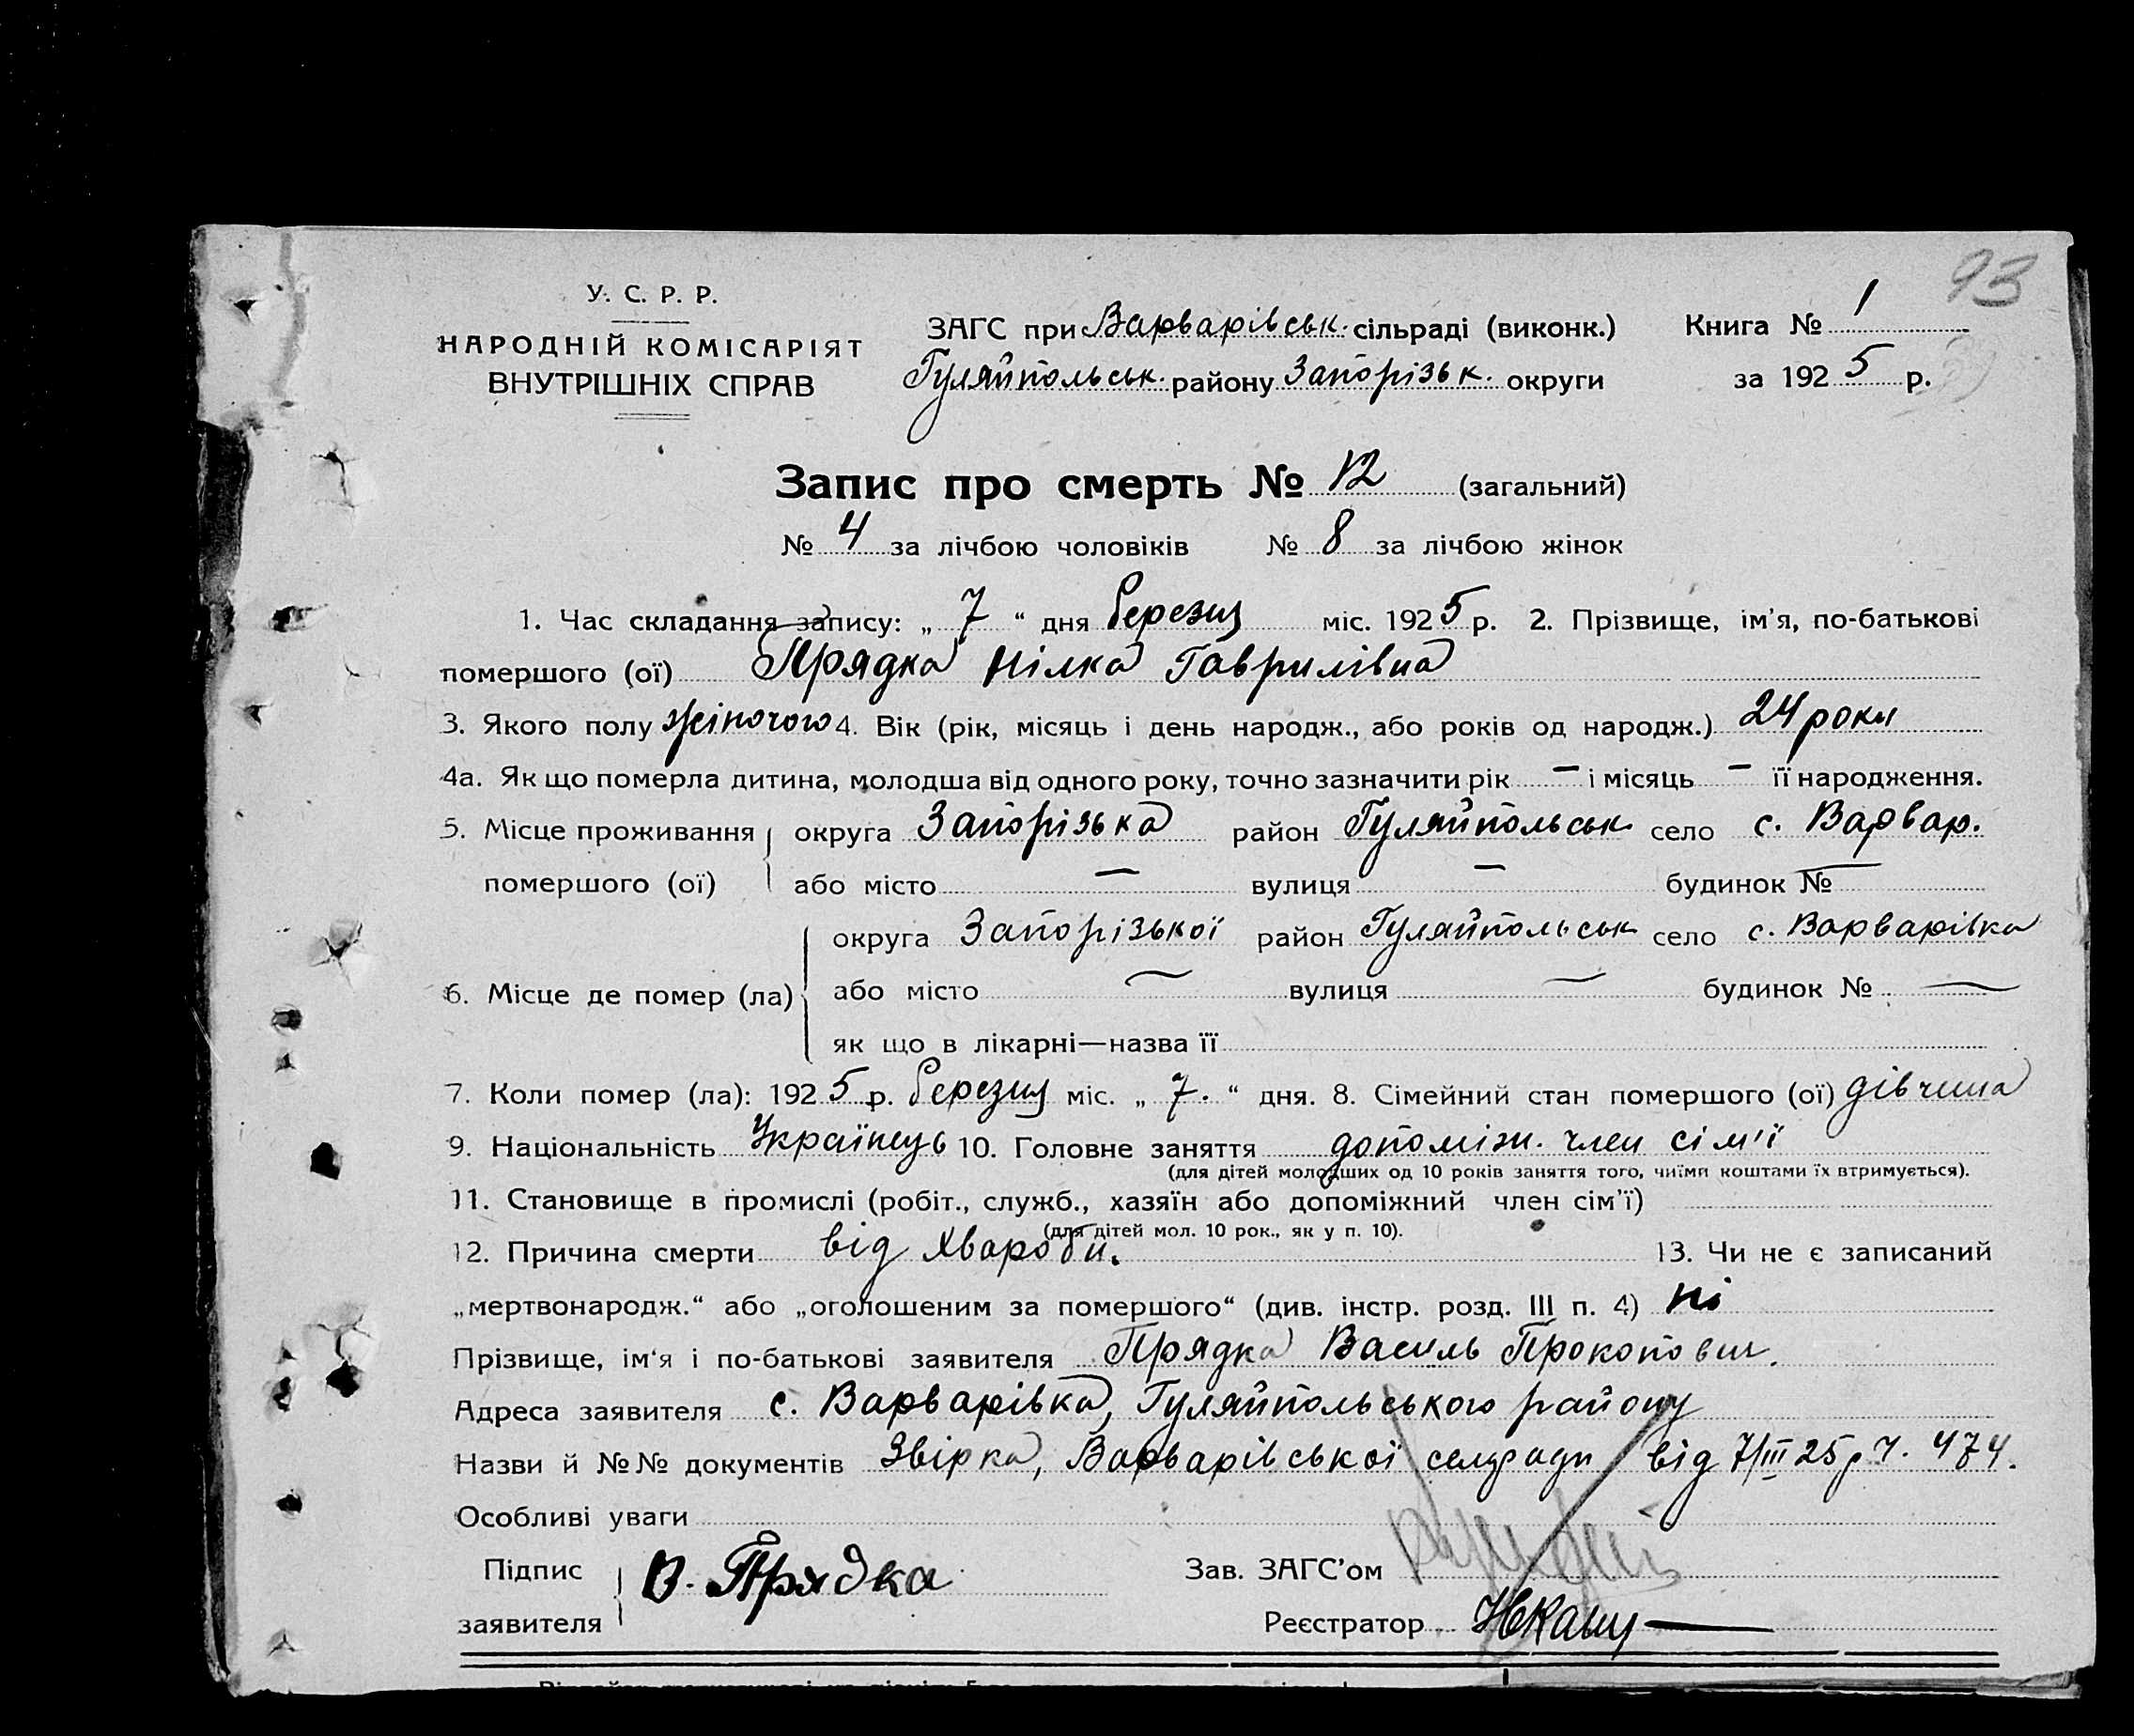 93
У. С. Р. Р.
НАРОДНІЙ КОМІСАРІЯТ
ВНУТРІШНІХ СПРАВ
ЗАГС при Варварівськ. сільраді (виконк.)
Гуляйпольськ. району Запорізьк. округи
Книга № 1
за 1925 р.
Запис про смерть № 12 (загальний)
№ 4 за лічбою чоловіків № 8 за лічбою жінок
1. Час складання запису: „ 7 “ дня березня міс. 1925 р. 2. Прізвище, ім'я, по-батькові
помершого (ої) Прядка Нілка Гаврилівна
3. Якого полу жіночого 4. Вік (рік, місяць і день народж., або років од народж.) 24 роки
4а. Як що померла дитина, молодша від одного року, точно зазначити рік — і місяць — її народження.
5. Місце проживання округа Запорізька район Гуляйпольськ село с. Варвар.
помершого (ої) або місто — вулиця — будинок № —
округа Запорізької район Гуляйпольськ село с. Варварівка
6. Місце де помер (ла) або місто — вулиця — будинок № —
як що в лікарні—назва її
7. Коли помер (ла): 1925 р. березня міс. „ 7. “ дня. 8. Сімейний стан помершого (ої) дівчина
9. Національність Українець 10. Головне заняття допоміжн. член сім'ї
(для дітей молодших од 10 років заняття того, чиїми коштами їх втримується).
11. Становище в промислі (робіт., служб., хазяїн або допоміжний член сім'ї)
(для дітей мол. 10 рок., як у п. 10).
12. Причина смерти від хвароби. 13. Чи не є записаний
„мертвонародж.“ або „оголошеним за помершого“ (див. інстр. розд. III п. 4) ні
Прізвище, ім'я і по-батькові заявителя Прядка Василь Прокопович.
Адреса заявителя с. Варварівка, Гуляйпольського району
Назви й №№ документів Звірка, Варварівської селради від 7/III 25 р ч. 474.
Особливі уваги
Підпис
заявителя В. Прядка
Зав. ЗАГС'ом
Реєстратор